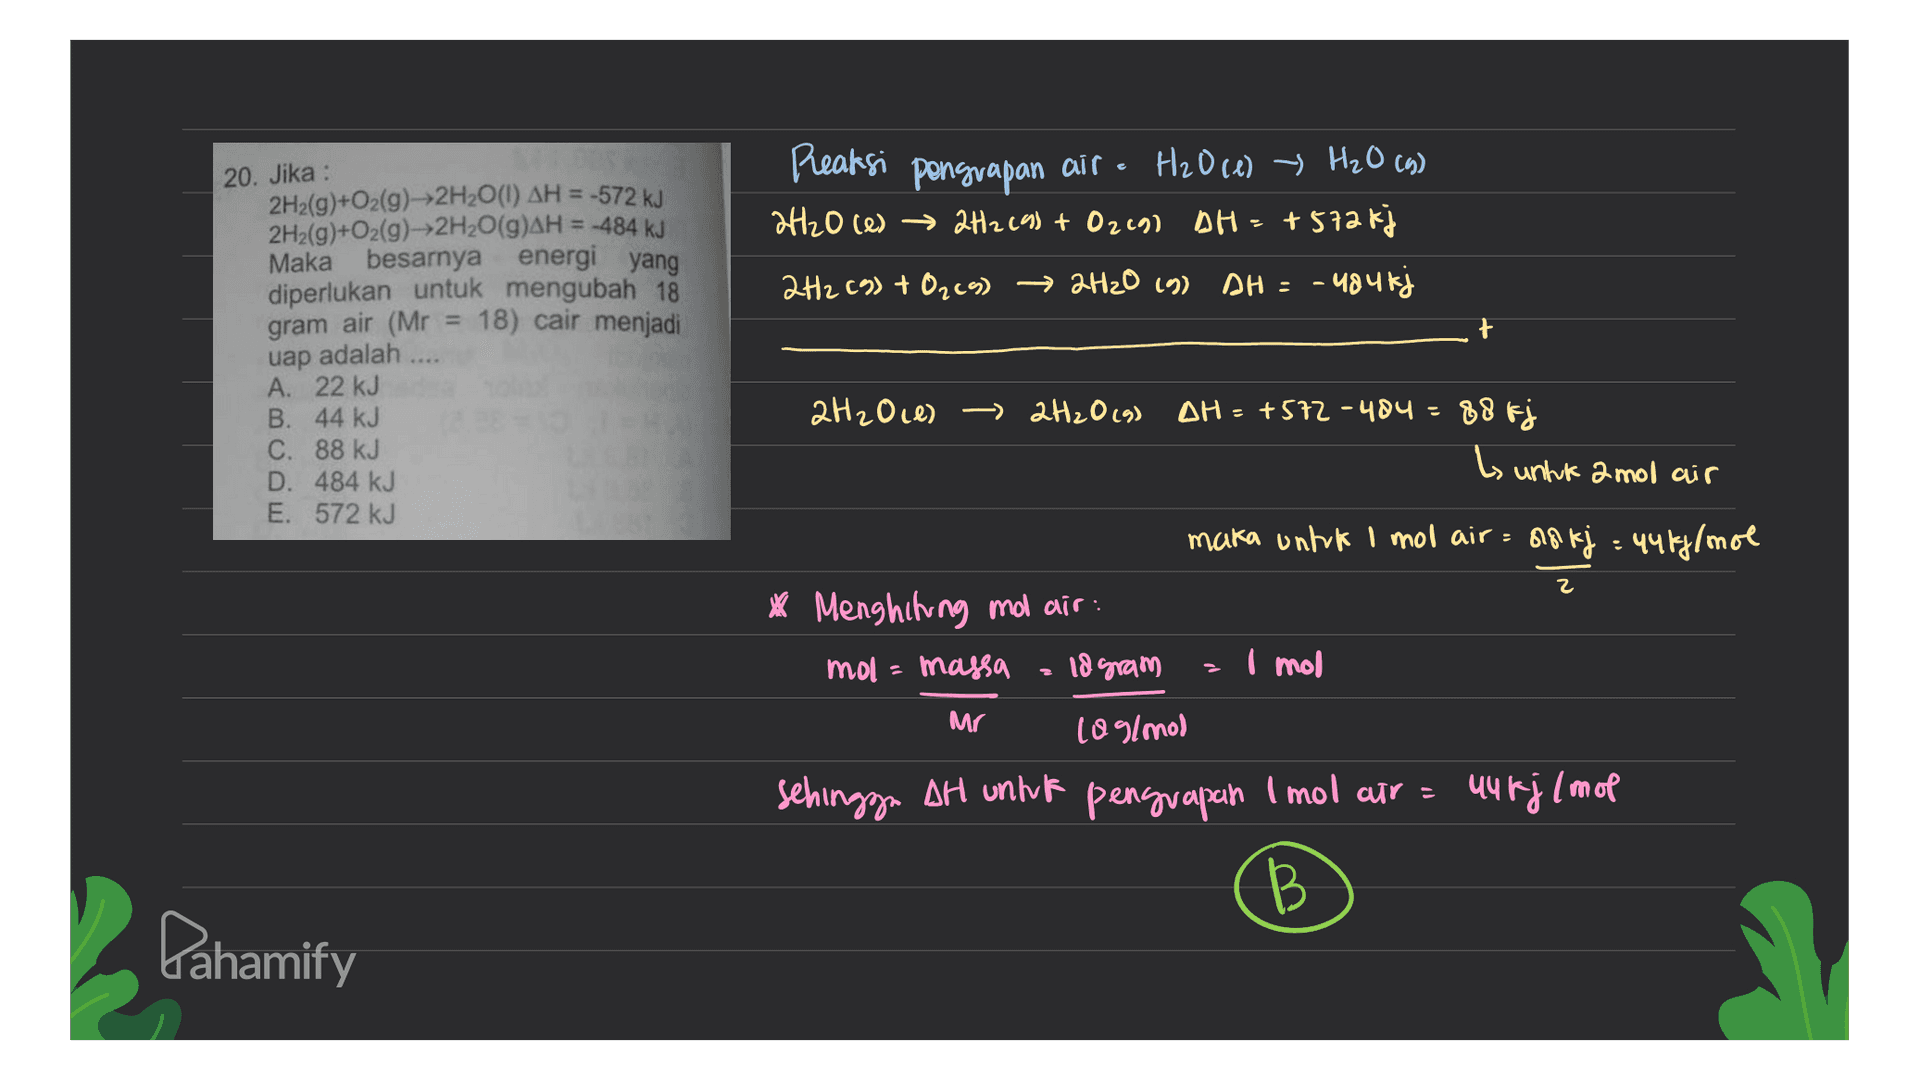 20. Jika :
2H₂(g)+O₂(g)→2H₂O(l) ΔH = -572 kJ
2H₂(g)+O₂(g)→2H₂O(g)ΔH = -484 kJ
Maka besarnya energi yang
diperlukan untuk mengubah 18
gram air (Mr = 18) cair menjadi
uap adalah ....
A. 22 kJ
B. 44 kJ
C. 88 kJ
D. 484 kJ
E. 572 kJ
Reaksi penguapan air = H₂O(l) → H₂O(g)
2H₂O(l) → 2H₂(g) + O₂(g) ΔH = +572 kj
2H₂(g) + O₂(g) → 2H₂O(g) ΔH = -484 kj
+
2H₂O(l) → 2H₂O(g) ΔH = +572 - 484 = 88 kj
↳ untuk 2 mol air
maka untuk 1 mol air = 88 kj = 44 kj/mol
2
* Menghitung mol air :
mol = massa = 18 gram = 1 mol
Mr 18 g/mol
sehingga ΔH untuk penguapan 1 mol air = 44 kj/mol
B
Pahamify